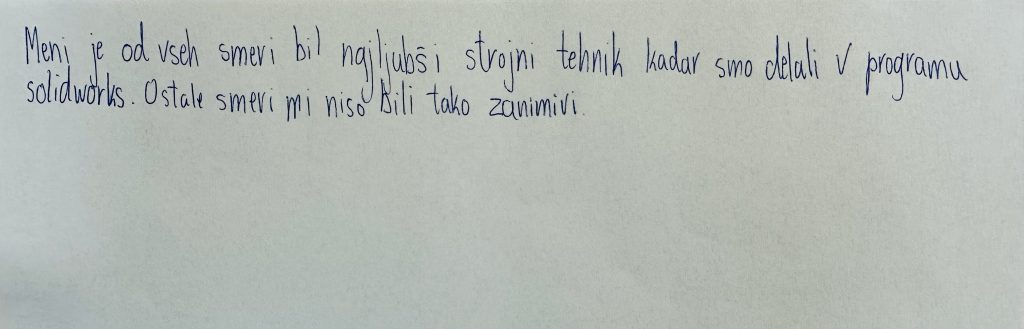 Meni je od vseh smeri bil najljubši strojni tehnik kadar smo delali v programu
solidworks. Ostale smeri mi niso bili tako zanimivi.